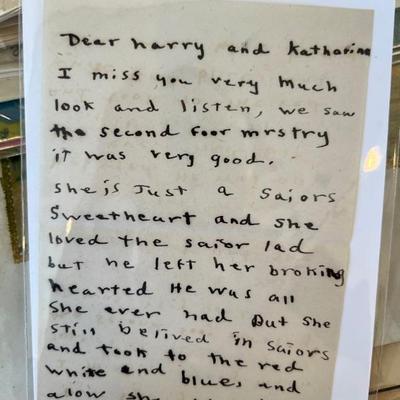 Dear harry and Katharine
I miss you very much
look and listen, we saw
the second foor mrstry
it was very good.
she is Just a Saiors
Sweetheart and she
loved the saior lad
but he left her broking
hearted He was all
She ever had But she
still belived in Saiors
and took to the red
white and blue, and
alow she